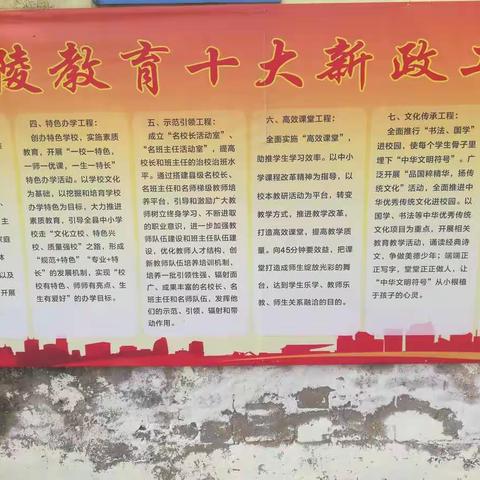 陵教育十大新政工
四、特色办学工程：
创办特色学校、实施素质
教育，开展“一校一特色，
一师一优课，一生一特长”
特色办学活动，以学校文化
为基础，以挖掘和培育学校
办学特色为目标，大力推进
素质教育，引导全县中小学
校走“文化立校、特色兴
校、质量强校”之路，形成
“规范+特色” “专业+特
长”的发展机制，实现“校
校有特色、师师有亮点、生
生有爱好”的办学目标。
庭
以及
开展
五、示范引领工程：
成立“名校长活动室”、
“名班主任活动室”，提高
校长和班主任的治校治班水
平。通过搭建县级名校长、
名班主任和名师梯级教师培
养平台，引导和激励广大教
师树立终身学习、不断进取
的职业意识，进一步加强教
师队伍建设和班主任队伍建
设，优化教师人才结构，创
新教师队伍培养培训机制，
培养一批引领性强、辐射面
广、成果丰富的名校长、名
班主任和名师队伍，发挥他
们的示范、引领、辐射和带
动作用。
六、高效课堂工程：
全面实施“高效课堂”，
助推学生学习效率。以中小
学课程改革精神为指导，以
校本教研活动为平台，转变
教学方式，推进教学改革，
打造高效课堂，提高教学质
量。向45分钟要效益，把课
堂打造成师生绽放光彩的舞
台，达到学生乐学、教师乐
教、师生关系融洽的目的。
七、文化传承工程：
全面推行“书法、国学”
进校园，使每个学生骨子里
埋下“中华文明符号”。广
泛开展“品国粹精华，扬传
统文化”活动，全面推进中
华优秀传统文化进校园。以
国学、书法等中华优秀传统
文化项目为重点，开展相关
教育教学活动，诵读经典诗
文，争做美德少年；端端正
正写字，堂堂正正做人，让
“中华文明符号”从小根植
于孩子的心灵。